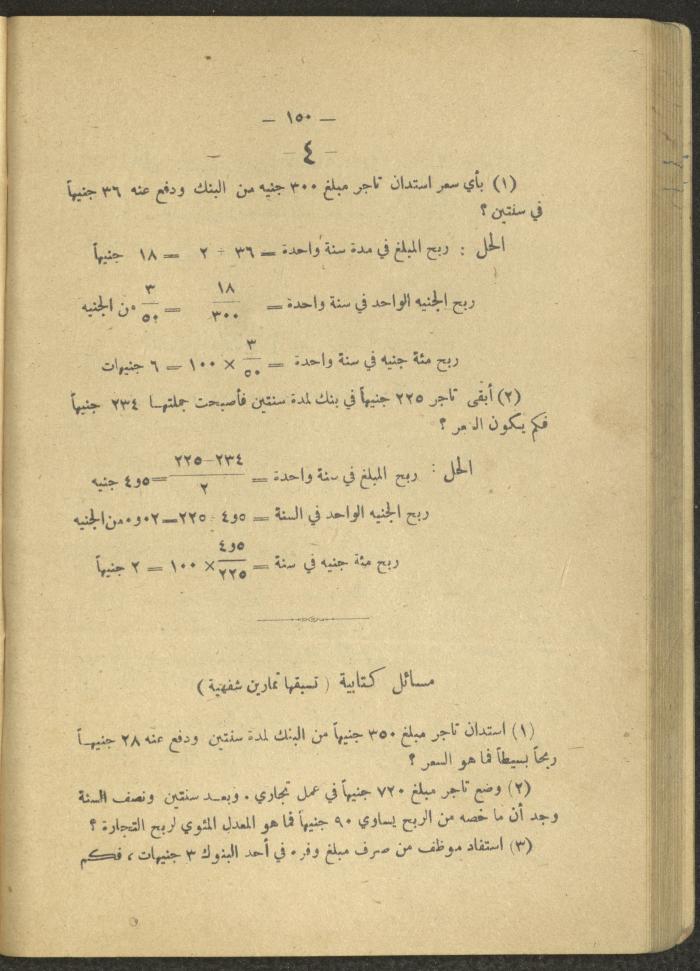 — ١٥٠ —
— ٤ —
(١) بأي سعر استدان تاجر مبلغ ٣٠٠ جنيه من البنك ودفع عنه ٣٦ جنيهاً
في سنتين ؟
الحل : ربح المبلغ في مدة سنة واحدة = ٣٦ ÷ ٢ = ١٨ جنيهاً
ربح الجنيه الواحد في سنة واحدة = ١٨/٣٠٠ = ٣/٥٠ من الجنيه
ربح مئة جنيه في سنة واحدة = ٣/٥٠ × ١٠٠ = ٦ جنيهات
(٢) أبقى تاجر ٢٢٥ جنيهاً في بنك لمدة سنتين فأصبحت جملتها ٢٣٤ جنيهاً
فكم يكون السعر ؟
الحل : ربح المبلغ في سنة واحدة = ٢٣٤–٢٢٥/٢ = ٥و٤ جنيه
ربح الجنيه الواحد في السنة = ٥و٤ ÷ ٢٢٥ = ٠٢و٠ من الجنيه
ربح مئة جنيه في سنة = ٥و٤/٢٢٥ × ١٠٠ = ٢ جنيهاً
مسائل كتابية ( تسبقها تمارين شفهية )
(١) استدان تاجر مبلغ ٣٥٠ جنيهاً من البنك لمدة سنتين ودفع عنه ٢٨ جنيهاً
ربحاً بسيطاً فما هو السعر ؟
(٢) وضع تاجر مبلغ ٧٢٠ جنيهاً في عمل تجاري . وبعد سنتين ونصف السنة
وجد أن ما خصه من الربح يساوي ٩٠ جنيهاً فما هو المعدل المئوي لربح التجارة ؟
(٣) استفاد موظف من صرف مبلغ وفره في أحد البنوك ٣ جنيهات ، فكم